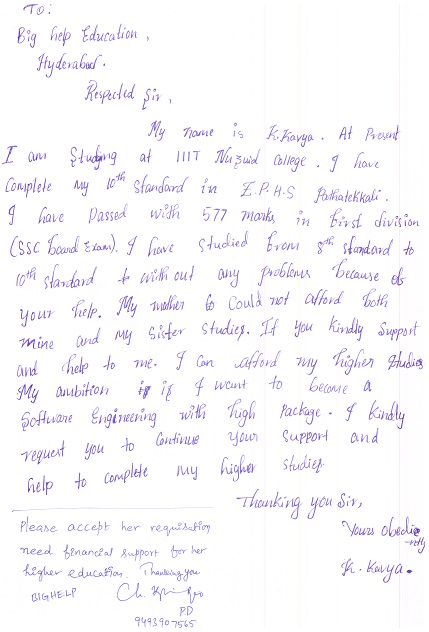 To:
Big help Education,
Hyderabad.
Respected Sir,
My name is K.Kavya. At Present
I am Studing at IIIT Nuzuid College. I have
Complete My 10th Standard in Z.P.H.S Pathatekkali.
I have Passed with 577 marks in first division
(SSC board Exam). I have studied from 8th standard to
10th standard with out any problems because of
your help. My mother Could not afford both
mine and my Sister Studies. If you kindly Support
and help to me. I can afford my higher studies
My ambition is if I want to become a
Software Engineering with high Package. I kindly
request you to Continue your support and
help to complete my higher studies
Thanking you Sir,
Yours obedie
-ntly
K. Kavya.
Please accept her requisation
need financial support for her
higher education. Thanking you
BIGHELP Ch.
PD
9493907565